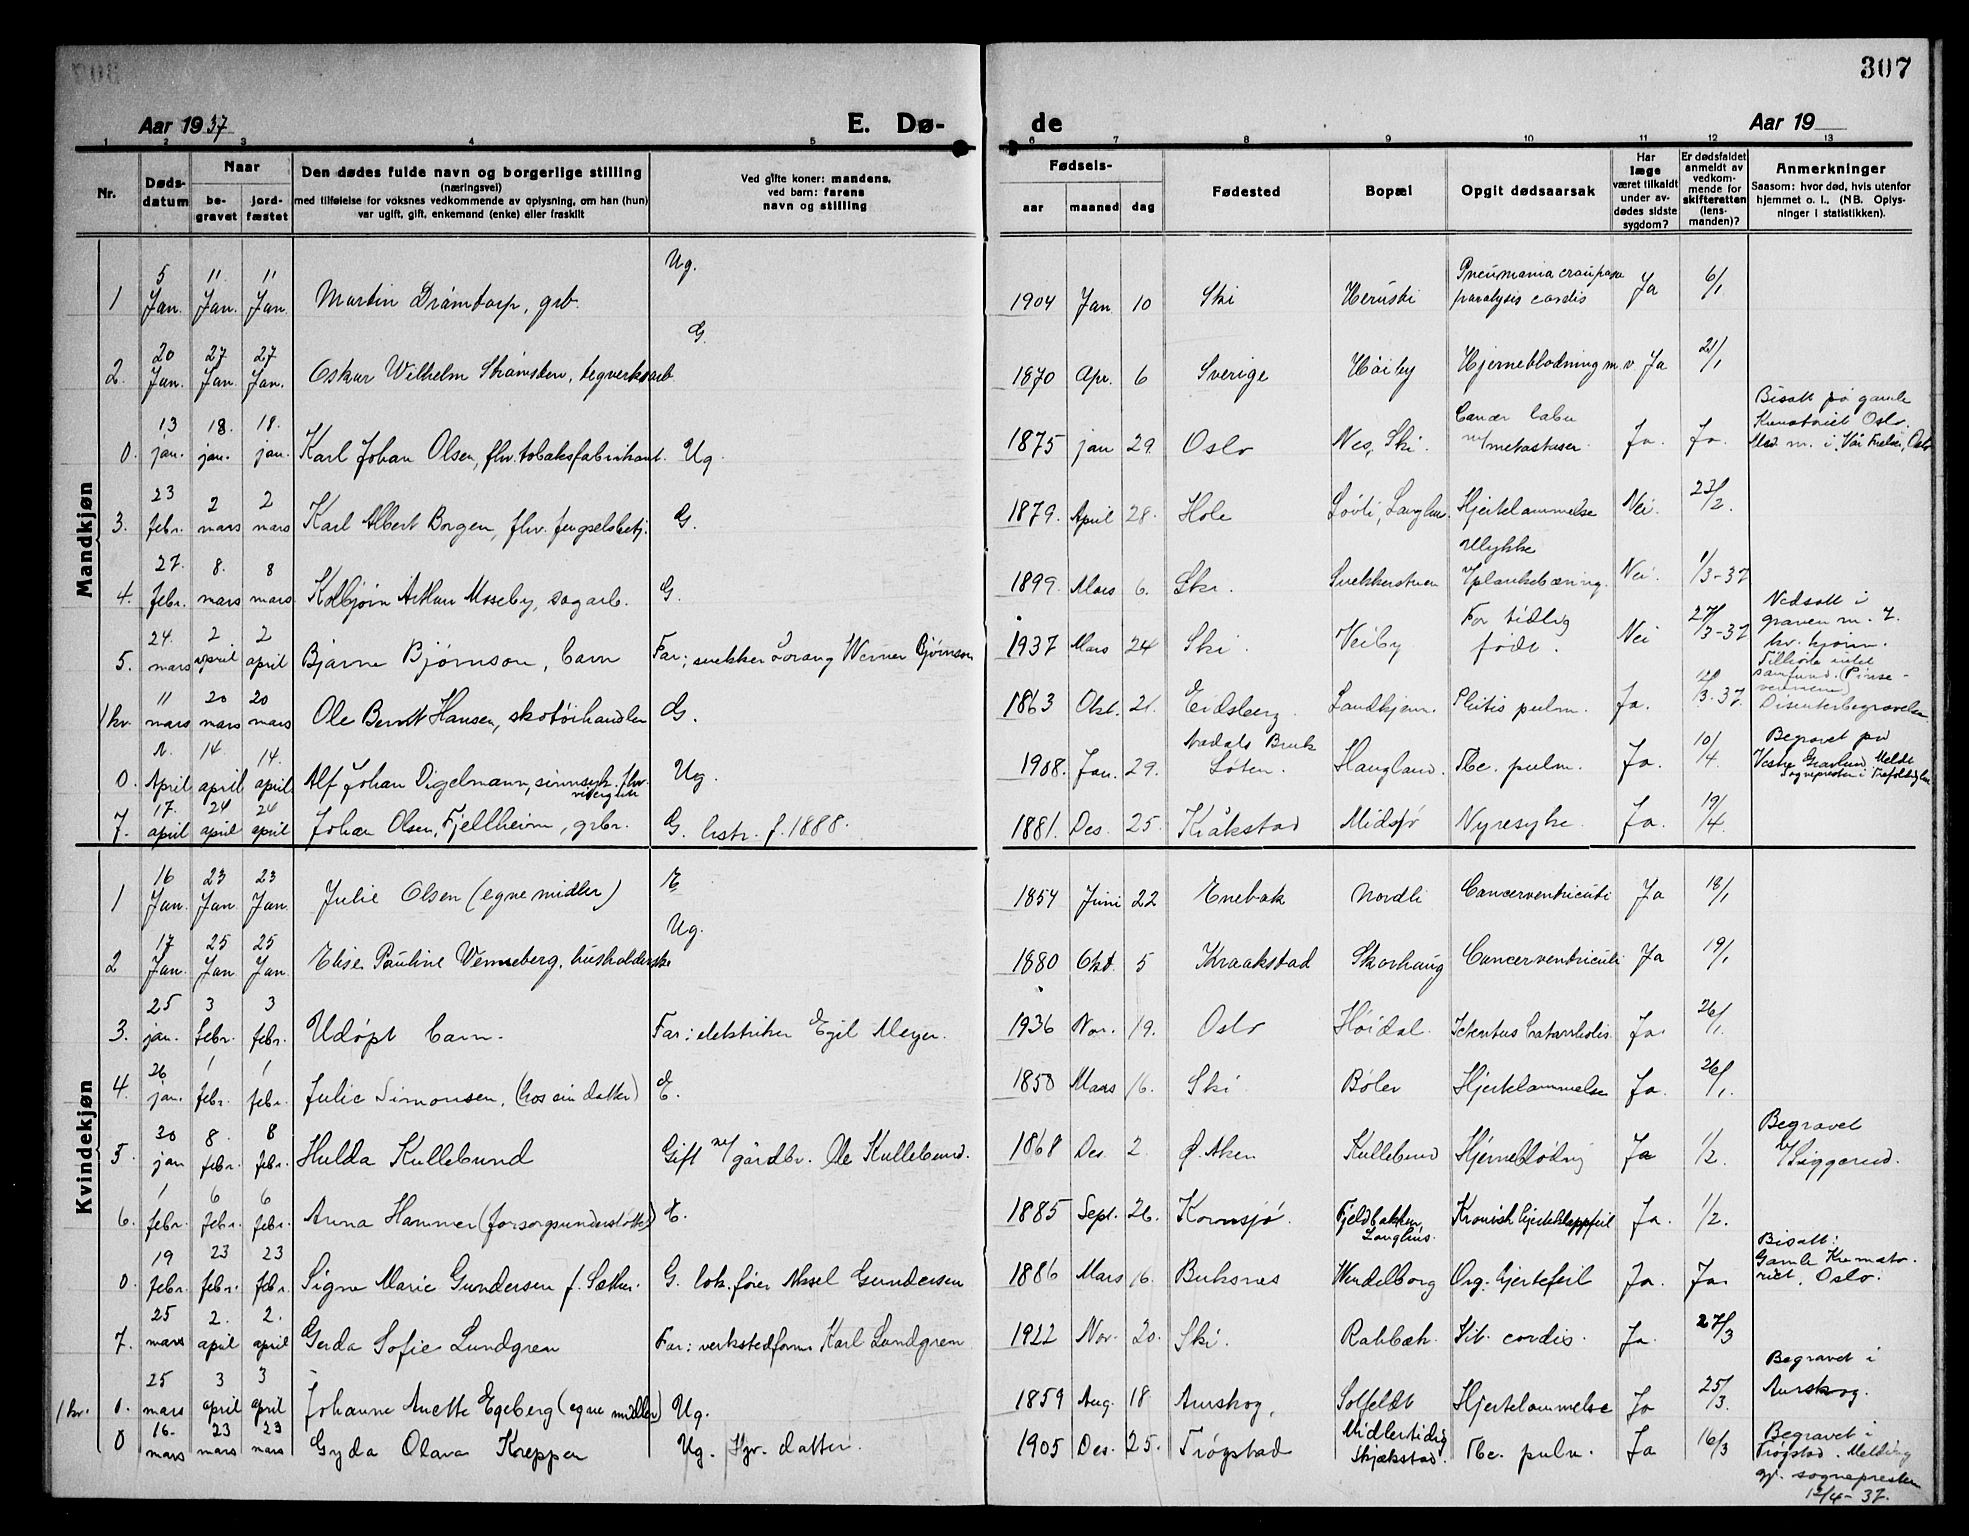 307
Aar 1937 E. Dø- de Aar 19
1 2 3 4 5 6 7 8 9 10 11 12 13
Nr. Døds-datum Naar be-gravet jord-fæstet Den dødes fulde navn og borgerlige stilling (næringsvei) med tilføielse for voksnes vedkommende av oplysning, om han (hun) var ugift, gift, enkemand (enke) eller fraskilt Ved gifte koner: mandens, ved barn: farens navn og stilling Fødsels- aar maaned dag Fødested Bopæl Opgit dødsaarsak Har læge været tilkaldt under av-dødes sidste sygdom? Er dødsfaldet anmeldt av vedkom-mende for skifteretten (lens-manden)? Anmerkninger Saasom: hvor død, hvis utenfor hjemmet o. l., (NB. Oplys-ninger i statistikken).
Mandkjøn
1 5 Jan. 11 Jan. 11 Jan. Martin Drømtorp, grb. Ug. 1904 Jan 10 Ski paralysis cordis Ja 6/1
2. 20 Jan. 27 Jan. 27 Jan. Oskar Wilhelm Strømsten, teglverksarb. G. 1870 Apr. 6 Sverige Høiby Hjerneblødning m. v. Ja 21/1
0. 13 jan. 18. jan. 18. jan. Karl Johan Olsen, fhv. tobaksfabrikant. Ug. 1875 jan 29. Oslo Nes, Ski. m/metastaser Ja. Ja. Bisatt på gamle Krematoriet Oslo.
3. 23 febr. 2 mars 2 mars Karl Albert Borgen, fhv. fengselsbetj. G. 1879. April 28. Hole Hjertelammelse Nei. 23/2.
4. 27. febr. 8. mars 8 mars Kolbjørn Arthur Moseby, sagarb. G. 1899. Mars 6. Ski. Snekkerstuen Ulykke v/plankebæring. Nei. 1/3-37
5. 24. mars 2 april 2 april Bjarne Bjørnson, barn Far; snekker Werner Bjørnson 1937 Mars 24 Ski. Veiby For tidlig født. Nei 27/3-37 Nedsatt i graven m. 7. kv. kjønn.
1 kv. 11 mars 20 mars 20 mars Ole Berndt Hansen, skotøihandler G. 1863 Okt. 21. Eidsberg. Landkjenn. pulm. Ja. /3-37. Tilhørte intet samfund. (Pinsevennene) Disenterbegravelse
0. April 14. april 14. april Alf Johan Digelmann, sinnsyk. fhv. visergutt Ug. 1908. Jan. 29. Aadals Bruk Løten. Haugland. Tbc. pulm. Ja. 10/4. Begravet på Vestre Gravlund. Melde
7. 17. april 24 april 24 april Johan Olsen, Fjellheim, grbr. G. f. 1888. 1881. Des. 25. Kråkstad Midsjø Nyresyke. Ja. 19/4.
Kvindekjøn
1 16 Jan. 23 Jan 23 Jan. Julie Olsen (egne midler) E 1854 Juni 22 Enebak Nordli Cancer ventriculi Ja 18/1
2 17 Jan. 25 Jan 25 Jan. Elise Pauline Wenneberg, husholderske Ug. 1880 Okt. 5 Kraakstad Skorhaug Cancer ventriculi Ja 19/1
3. 25 jan. 3 febr. 3 febr. Udøpt barn. Far: elektriker Egil Meyer. 1936 Nov. 19. Oslo Høidal. Ikterus catarrhalis. Ja. 26/1.
4. 26 jan. 1 febr. 1 febr. Julie Simonsen, (hos sin datter) E. 1850 Mars 16. Ski Bøler Hjertelammelse Ja. 26/1.
5. 30 jan 8. febr. 8 febr. Hulda Kullebund Gift m/ gårdbr. Ole Kullebund. 1868 Des. 2. Ø. Aker Kullebund Hjerneblødnig Ja 1/2. Begravet v/ Siggerud.
6. 1 febr. 6 febr. 6 febr. Anna Hammer (forsorgsunderstøttet) E. 1885 Sept. 26. Kornsjø. Fjeldbakken, Langhus. Kronisk hjerteklappfeil Ja. 1/2.
0. 19 febr. 23 febr. 23 febr. Signe Marie Gundersen f. Sæther. G. lok.fører Aksel Gundersen 1886 Mars 16. Buksnes Wendelborg Org. hjertefeil Ja. Ja. Bisatt: Gamle Krematoriet, Oslo.
7. 25 mars 2. april 2. april Gerda Sofie Lundgren Far: verkstedform. Karl Lundgren 1922 Nov. 20. Ski. Rabbæk. Vit. cordis. Ja. 27/3
1 kv. 0. 25 mars 3 april 3 april Johanne Anette Egeberg (egne midler) Ug. 1859 Aug. 18 Aurskog, Solfeldt Hjertelammelse Ja 25/3. Begravet i Aurskog.
0 16. mars 23 mars 23 mars Gyda Olava Kreppen Ug. Hjv. datter. 1905 Des. 25. Trøgstad Midlertidig Skjækstad. Tbc. pulm. Ja 16/3 Begravet i Trøgstad. Melding gj. sognepresten 12/4-37.